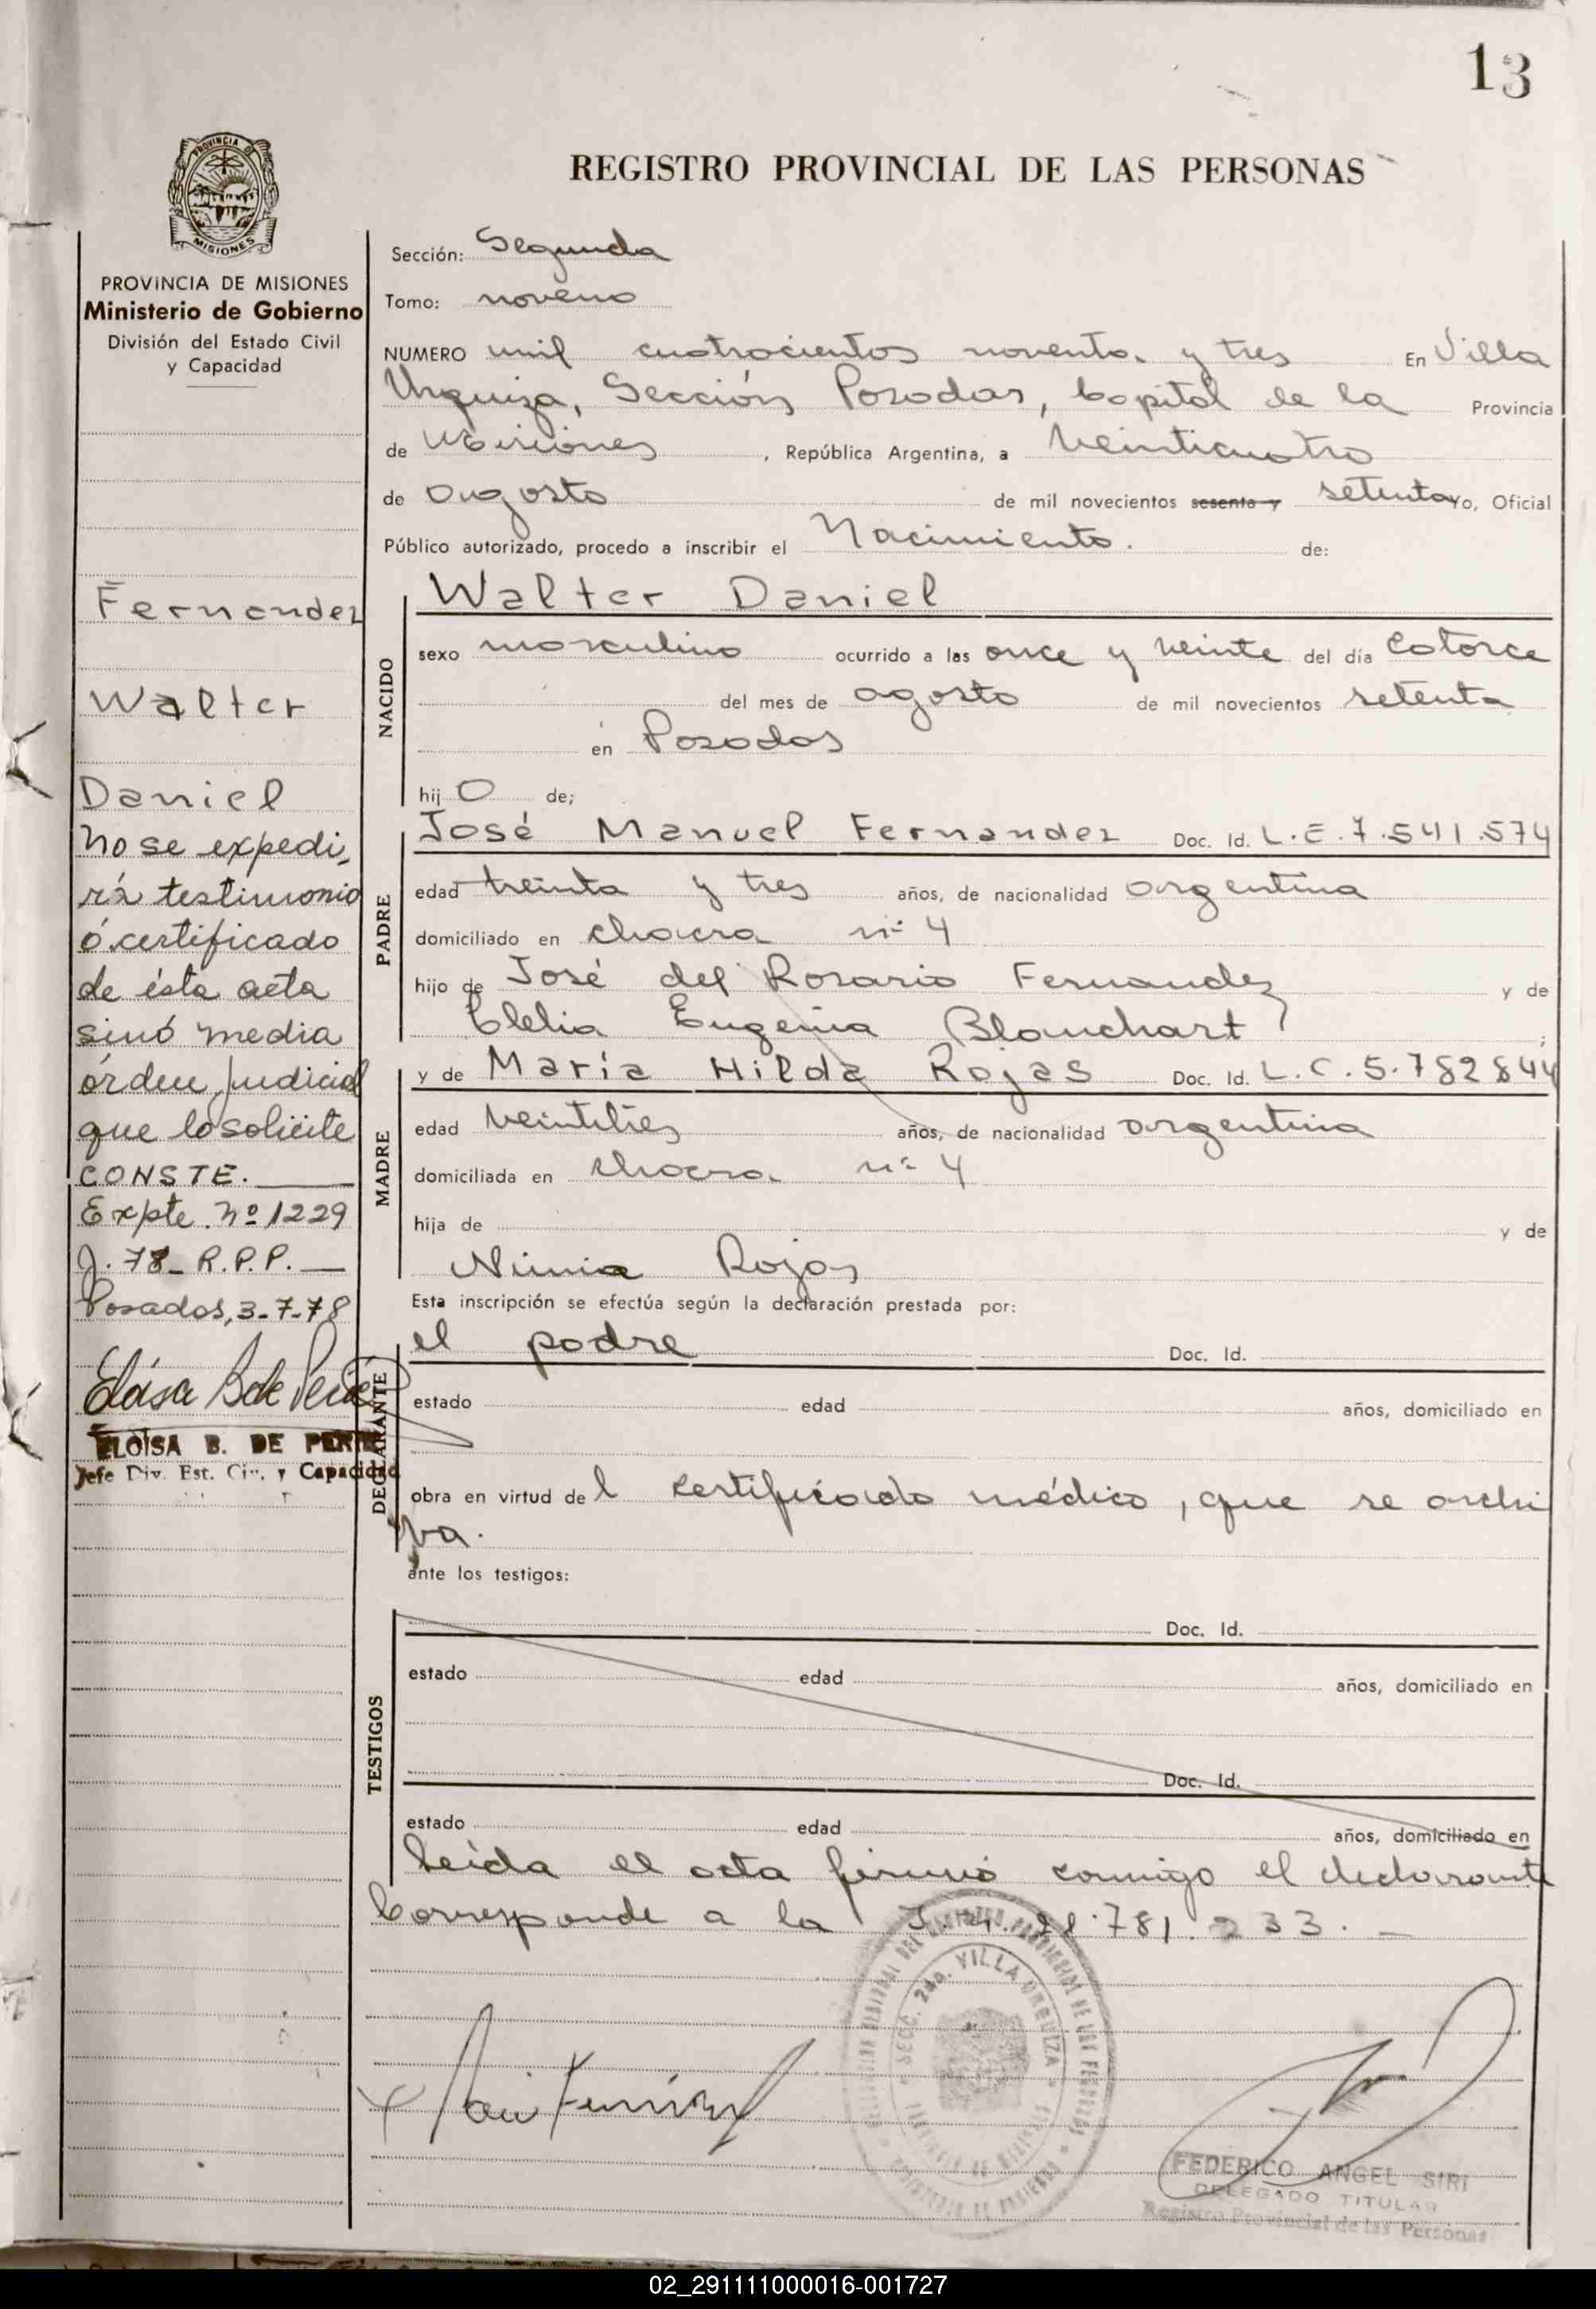 13
PROVINCIA DE
MISIONES
REGISTRO PROVINCIAL DE LAS PERSONAS
PROVINCIA DE MISIONES
Ministerio de Gobierno
División del Estado Civil
y Capacidad
Fernandez
Walter
Daniel
No se expedi,
rá testimonio
ó certificado
de ésta acta
sinó media
órden judicial
que lo solicite
CONSTE.
Expte. Nº 1229
J. 78_ R.P.P.
Posadas, 3-7-78
ELOISA B. DE
Jefe Div. Est. Civ. y Capacidad
Sección: Segunda
Tomo: noveno
NUMERO mil cuatrocientos noventa y tres En Villa
Urquiza, Sección Posadas, Capital de la Provincia
de Misiones, República Argentina, a Veinticuatro
de agosto de mil novecientos sesenta y setenta yo, Oficial
Público autorizado, procedo a inscribir el Nacimiento. de:
NACIDO
Walter Daniel
sexo masculino ocurrido a las once y veinte del día Catorce
del mes de agosto de mil novecientos setenta
en Posadas
hijo de;
PADRE
José Manuel Fernandez Doc. Id. L.E.7.541.574
edad treinta y tres años, de nacionalidad argentina
domiciliado en chacra nº 4
hijo de José del Rosario Fernandez y de
Clelia Eugenia Blanchart;
MADRE
y de María Hilda Rojas Doc. Id. L.C.5.782844
edad Veintitres años, de nacionalidad argentina
domiciliada en chacra nº 4
hija de y de
Nimia Rojas
Esta inscripción se efectúa según la declaración prestada por:
DECLARANTE
el padre Doc. Id.
estado edad años, domiciliado en
obra en virtud del certificado médico, que se archi
va.
ante los testigos:
TESTIGOS
Doc. Id.
estado edad años, domiciliado en
Doc. Id.
estado edad años, domiciliado en
Leída el acta firmó conmigo el declarante
Corresponde a la 781. 233.
SECC. 2da. VILLA URQUIZA
FEDERICO ANGEL SIRI
DELEGADO TITULAR
Registro Provincial de las Personas
02_291111000016-001727